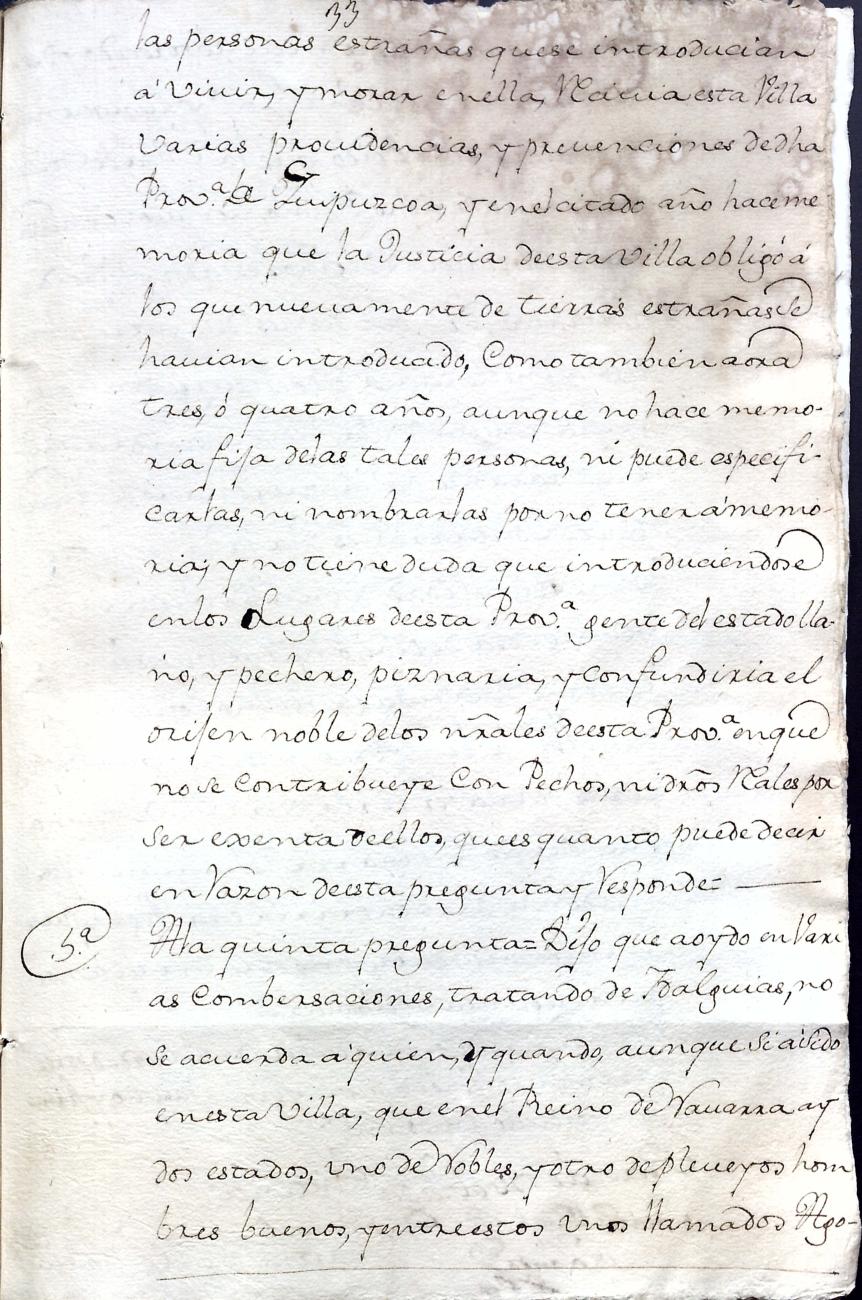 33
las personas estrañas quese introducian
á vivir, y morar enella, Recivia esta Villa
varias providencias, y prevenciones dedha
Prov.ª de Guipuzcoa, y enelcitado año haceme
moria que la Justicia deesta villa obligó á
los que nuevamente de tierras estrañas se
havian introducido, Como tambien aora
tres, ó quatro años, aunque no hace memo-
ria fija delas tales personas, ni puede especifi-
carlas, ni nombrarlas por no tener á memo-
ria; y no tiene duda que introduciendose
enlos Lugares deesta Prov.ª gente del estado lla-
no, y pechero, piznaria, y Confundiria el
orijen noble delos nr̃ales deesta Prov.ª enque
no se Contribueye Con Pechos, ni dr̃os Rales por
ser exenta de ellos, quees quanto puede decir
en Razon deesta pregunta y Responde=
5.ª
Ala quinta pregunta= Dijo que aoydo en Vari
as Combersaciones, tratando de Idalguias, no
se acuerda á quien, y quando, aunque Si á sido
enesta Villa, que enel Reino de Navarra ay
dos estados, uno de Nobles, y otro de pleveyos hom
bres buenos, y entre estos unos llamados Ago-